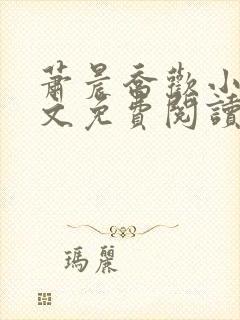 蕭晨喬歡小
文免費閱讀
瑪麗